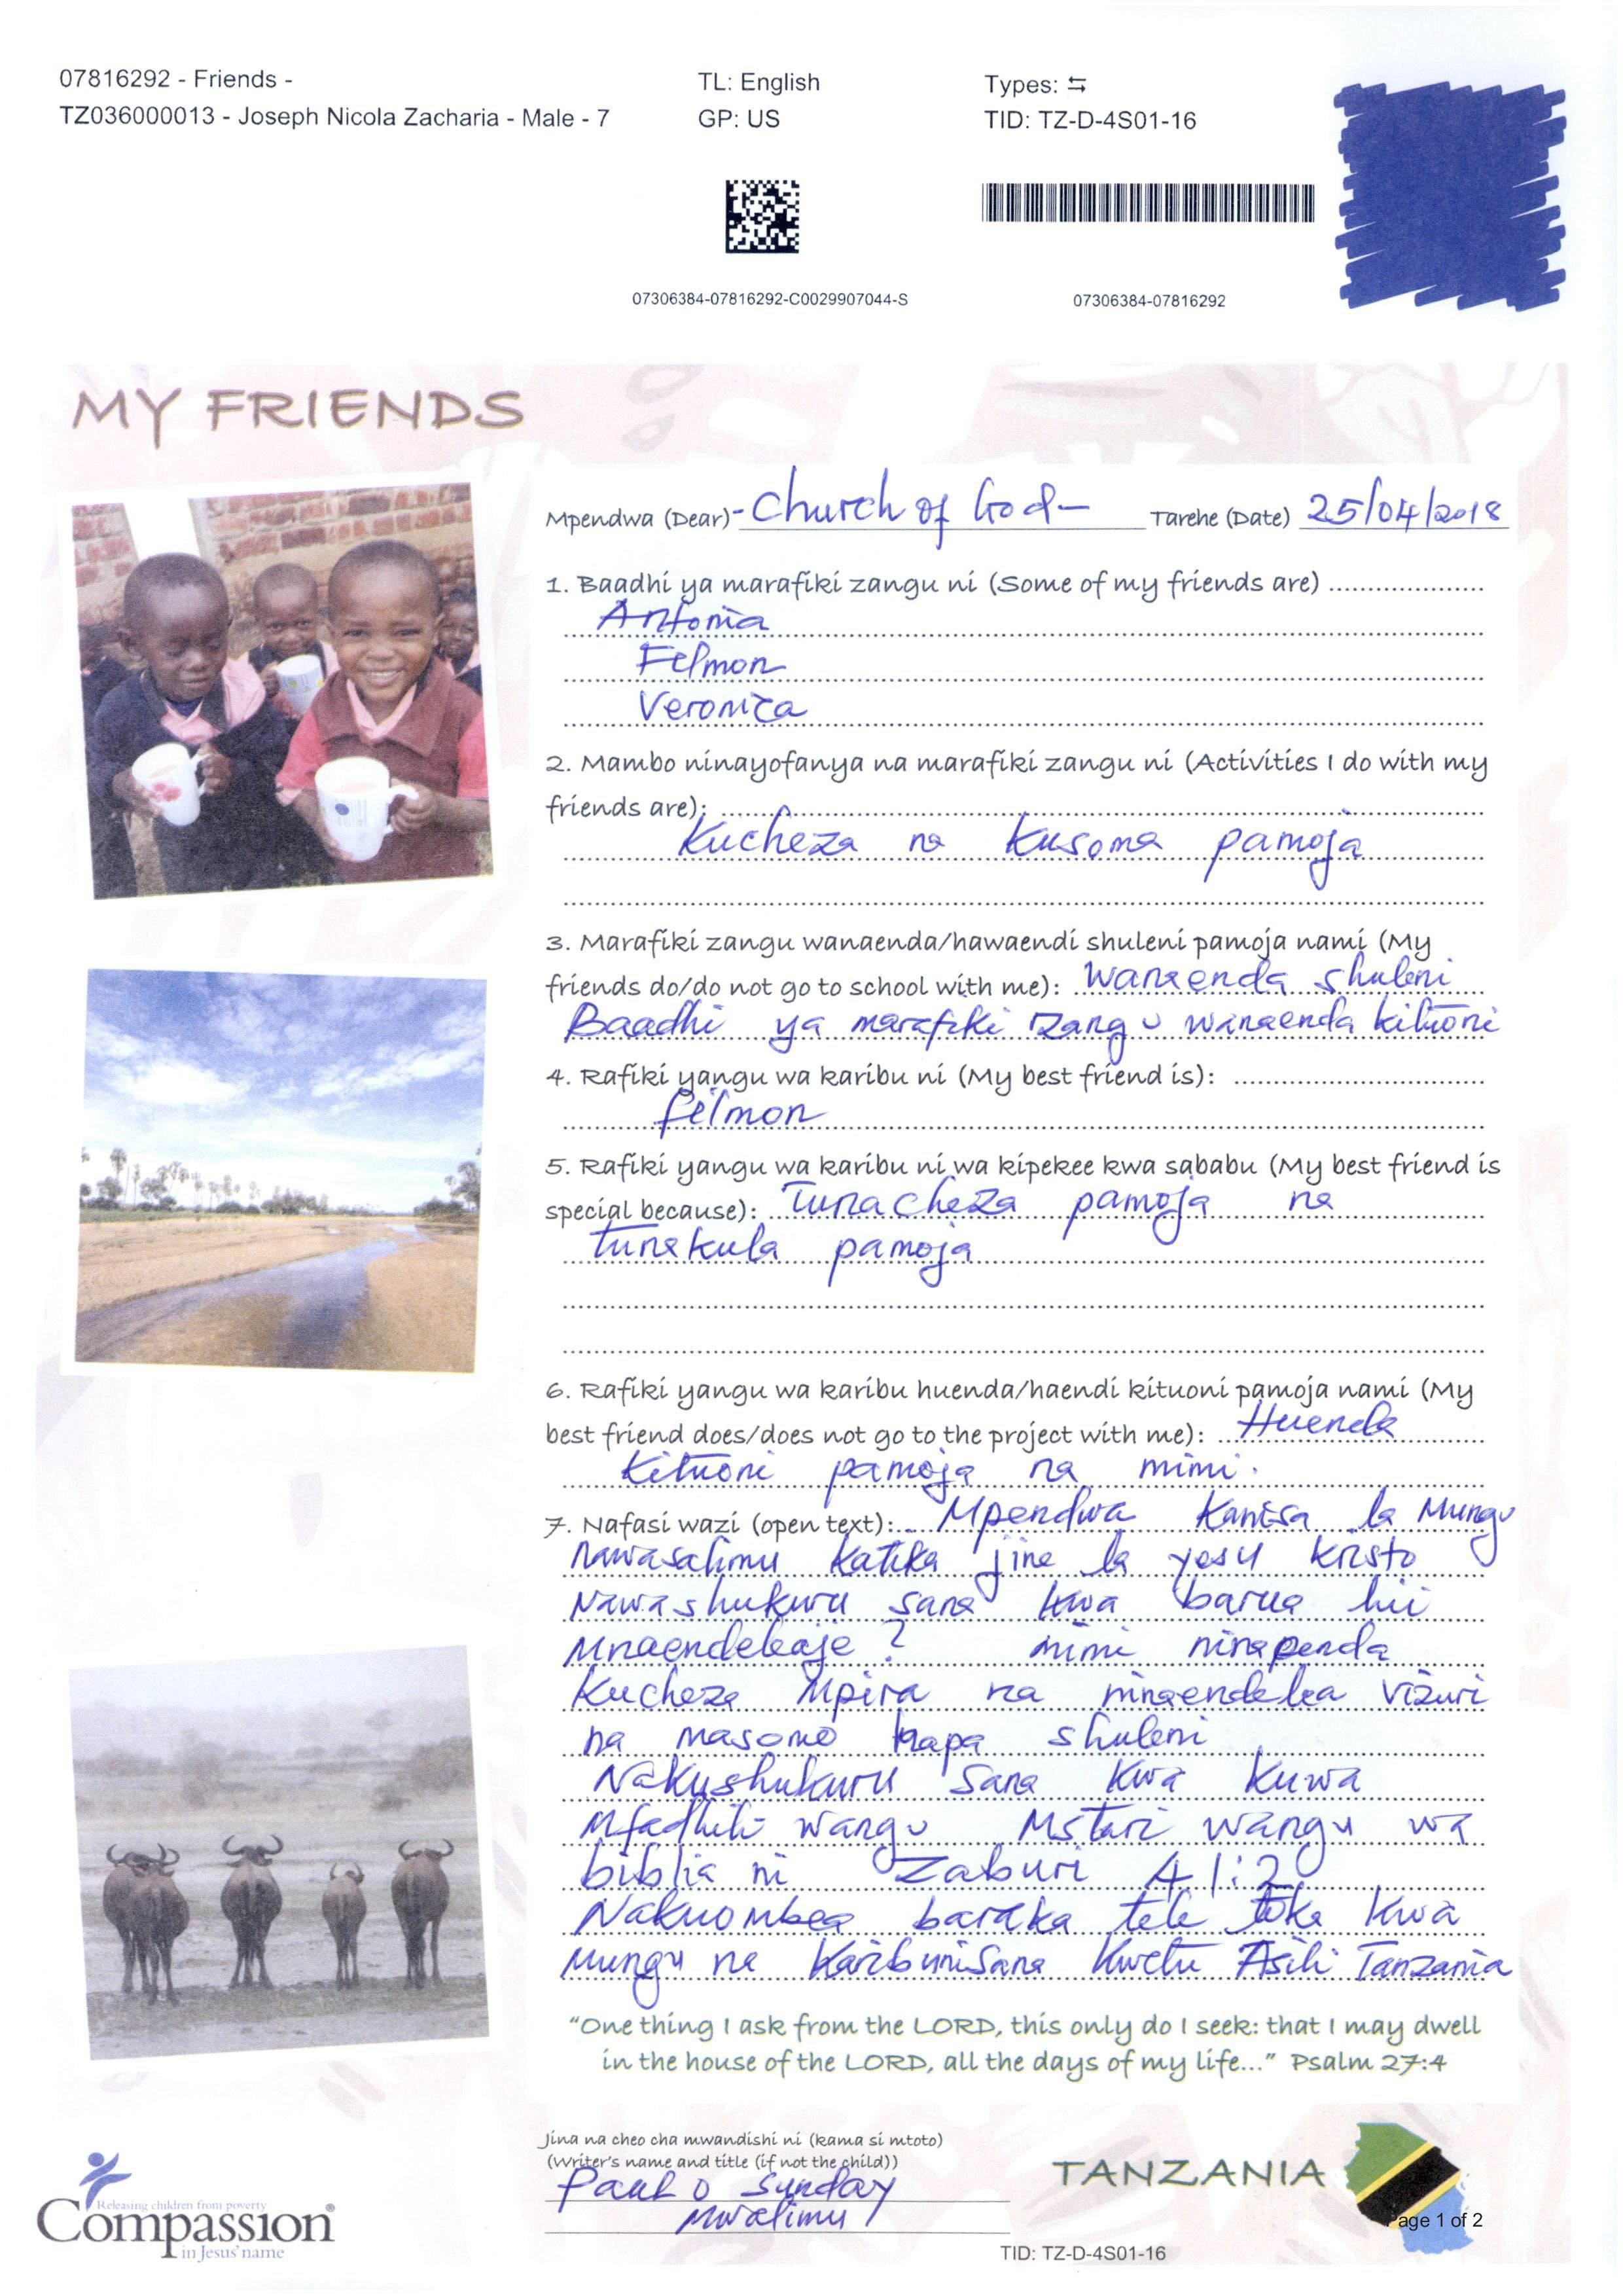 07816292 - Friends -
TZ036000013 - Joseph Nicola Zacharia - Male - 7
TL: English
GP: US
Types: ⇆
TID: TZ-D-4S01-16
07306384-07816292-C0029907044-S
07306384-07816292
MY FRIENDS
Mpendwa (Dear) - Church of God - Tarehe (Date) 25/04/2018
1. Baadhi ya marafiki zangu ni (Some of my friends are)
Antonia
Felmon
Veronica
2. Mambo ninayofanya na marafiki zangu ni (Activities I do with my
friends are):
Kucheza na Kusoma pamoja
3. Marafiki zangu wanaenda/hawaendi shuleni pamoja nami (My
friends do/do not go to school with me): Wanaenda shuleni
Baadhi ya marafiki zangu wanaenda kituoni
4. Rafiki yangu wa karibu ni (My best friend is):
felmon
5. Rafiki yangu wa karibu ni wa kipekee kwa sababu (My best friend is
special because): Tunacheza pamoja na
tunakula pamoja
6. Rafiki yangu wa karibu huenda/haendi kituoni pamoja nami (My
best friend does/does not go to the project with me): Huenda
Kituoni pamoja na mimi.
7. Nafasi wazi (open text): Mpendwa Kanisa la Mungu
Nawasalimu Katika jina la yesu Kristo
Nawashukuru sana kwa barua hii
Mnaendeleaje? mimi ninapenda
Kucheza Mpira na ninaendelea vizuri
na masomo hapa shuleni
Nakushukuru sana kwa kuwa
Mfadhili wangu Mstari wangu wa
biblia ni Zaburi 41:2
Nakuombea baraka tele toka kwa
Mungu na Karibuni Sana Kwetu Asili Tanzania
"One thing I ask from the LORD, this only do I seek: that I may dwell
in the house of the LORD, all the days of my life..." Psalm 27:4
Jina na cheo cha mwandishi ni (kama si mtoto)
(Writer's name and title (if not the child))
Paul O Sunday
Mwalimu
Releasing children from poverty
Compassion®
in Jesus' name
TANZANIA
Page 1 of 2
TID: TZ-D-4S01-16